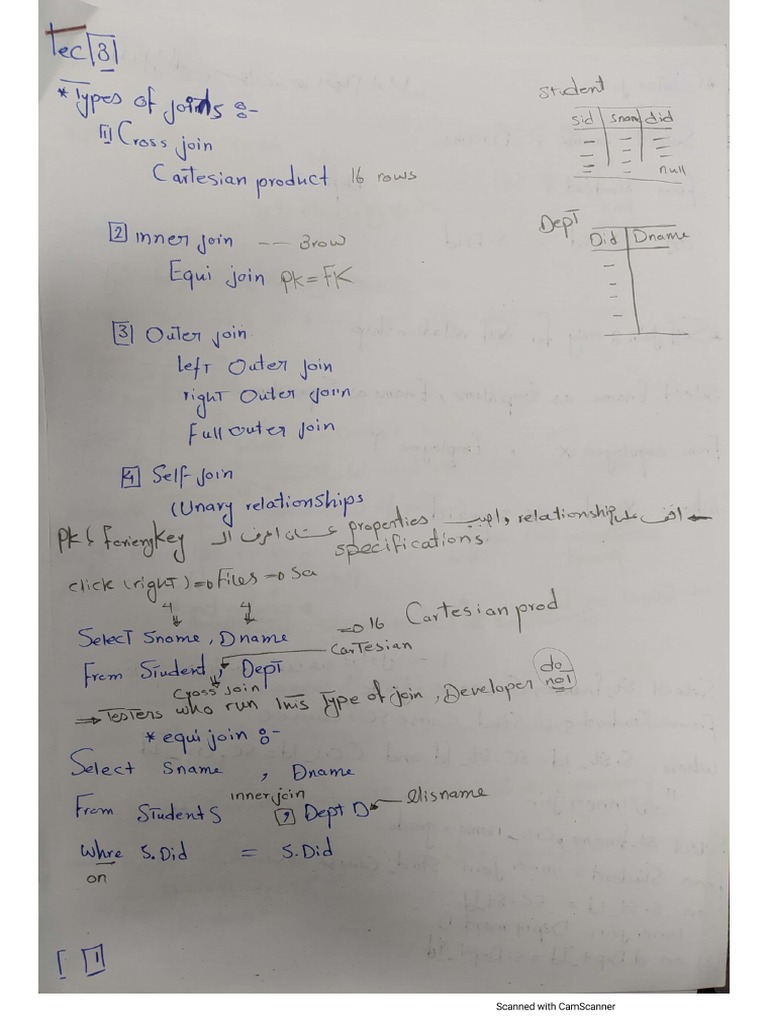 Lec [3]
* Types of joins :-
[1] Cross join
Cartesian product 16 rows
[2] inner join -- 3row
Equi join PK=FK
[3] Outer join
left Outer join
right Outer join
Full outer join
[4] Self-join
(Unary relationships
Student
sid | snam | did
null
Dept
Did | Dname
← اقف على relationship واجيب properties عشان اعرف الـ PK & ForiengKey
specifications
click (right) => Files => Sa
4 4
Select Sname, Dname => 16 Cartesian prod
Cartesian
From Student, Dept
Cross join
=> Testers who run this Type of join, Developer do not
* equi join :-
Select Sname , Dname
inner join
From Student S , Dept D ← elisname
Whre S.Did = S.Did
on
[ [1]
Scanned with CamScanner